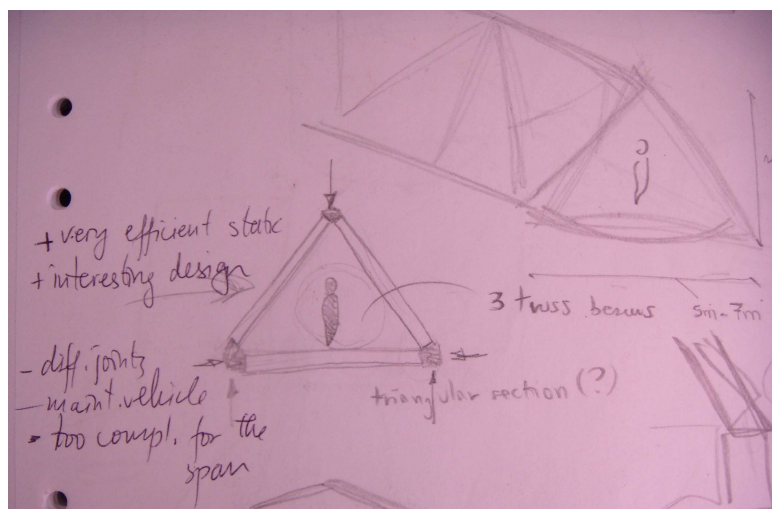 + very efficient static
+ interesting design
- diff. joints
- maint. vehicle
- too compl. for the
span
3 truss beams
5m - 7m
triangular section (?)